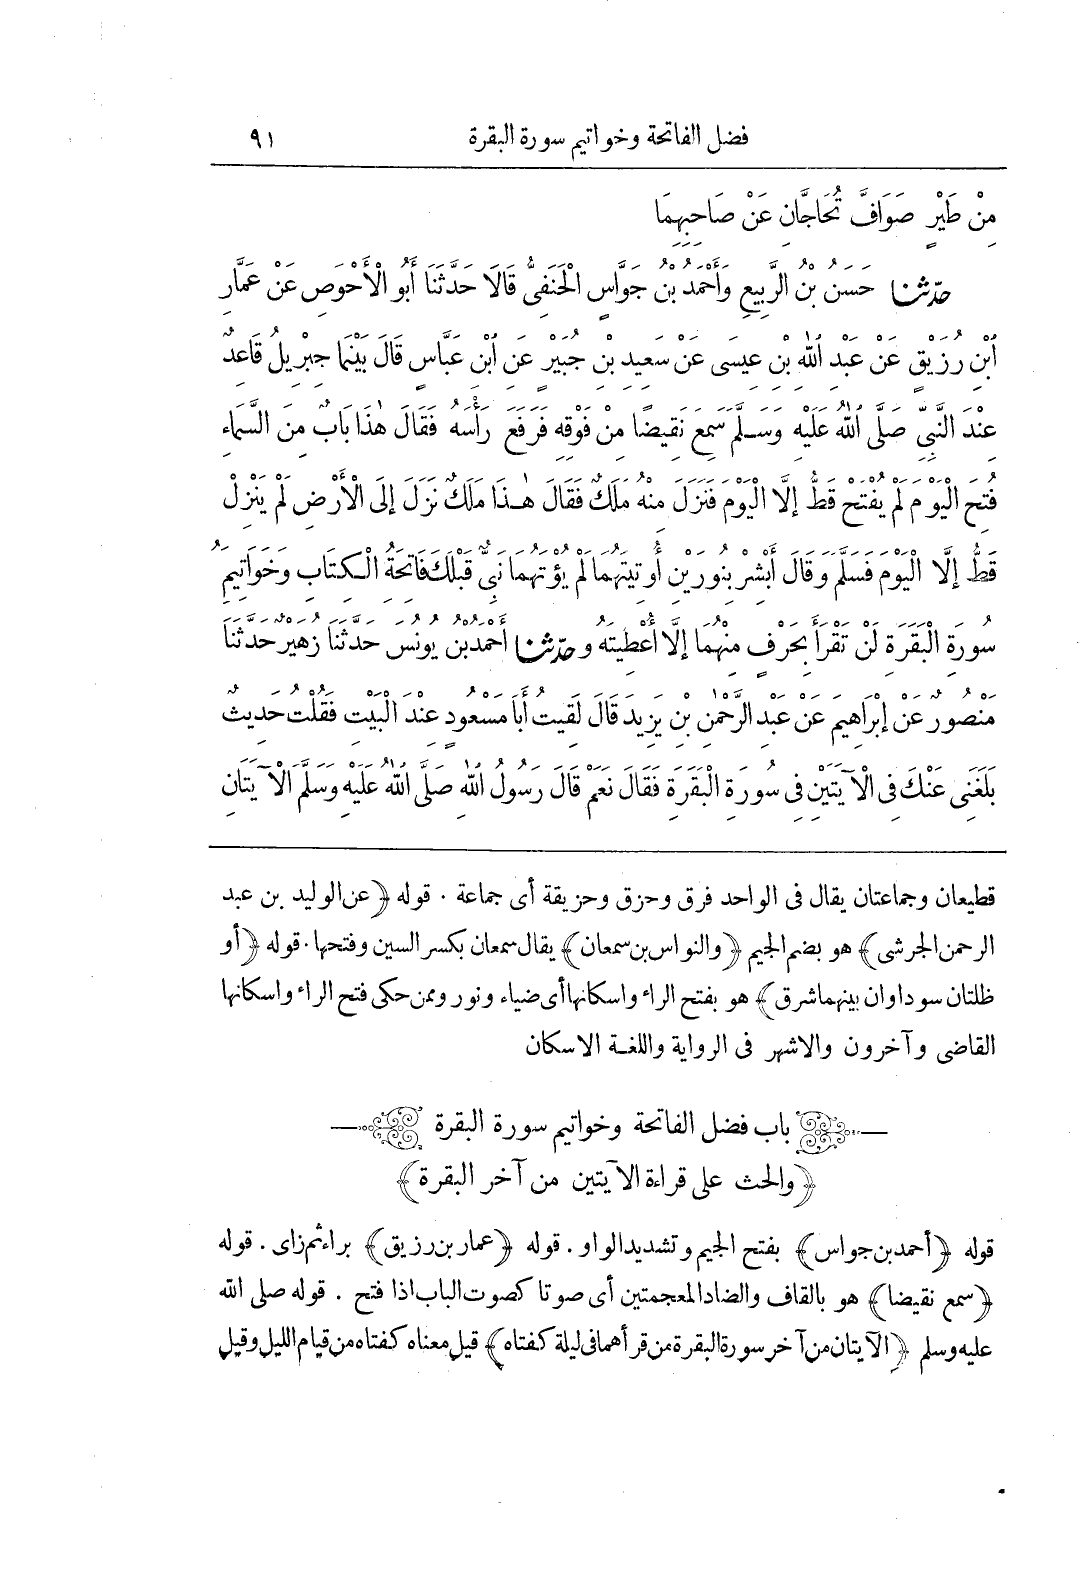 فضل الفاتحة وخواتيم سورة البقرة ٩١
مِنْ طَيْرٍ صَوَافَّ تُحَاجَّانِ عَنْ صَاحِبِهِمَا
حدّثنا حَسَنُ بْنُ الرَّبِيعِ وَأَحْمَدُ بْنُ جَوَّاسٍ الْحَنَفِىُّ قَالَا حَدَّثَنَا أَبُو الْأَحْوَصِ عَنْ عَمَّارِ
ابْنِ رُزَيْقٍ عَنْ عَبْدِ اللهِ بْنِ عِيسَى عَنْ سَعِيدِ بْنِ جُبَيْرٍ عَنِ ابْنِ عَبَّاسٍ قَالَ بَيْنَمَا جِبْرِيلُ قَاعِدٌ
عِنْدَ النَّبِىِّ صَلَّى اللهُ عَلَيْهِ وَسَلَّمَ سَمِعَ نَقِيضًا مِنْ فَوْقِهِ فَرَفَعَ رَأْسَهُ فَقَالَ هٰذَا بَابٌ مِنَ السَّمَاءِ
فُتِحَ الْيَوْمَ لَمْ يُفْتَحْ قَطُّ إِلَّا الْيَوْمَ فَنَزَلَ مِنْهُ مَلَكٌ فَقَالَ هٰذَا مَلَكٌ نَزَلَ إِلَى الْأَرْضِ لَمْ يَنْزِلْ
قَطُّ إِلَّا الْيَوْمَ فَسَلَّمَ وَقَالَ أَبْشِرْ بِنُورَيْنِ أُوتِيتَهُمَا لَمْ يُؤْتَهُمَا نَبِىٌّ قَبْلَكَ فَاتِحَةُ الْكِتَابِ وَخَوَاتِيمُ
سُورَةِ الْبَقَرَةِ لَنْ تَقْرَأَ بِحَرْفٍ مِنْهُمَا إِلَّا أُعْطِيتَهُ وحدّثنا أَحْمَدُ بْنُ يُونُسَ حَدَّثَنَا زُهَيْرٌ حَدَّثَنَا
مَنْصُورٌ عَنْ إِبْرَاهِيمَ عَنْ عَبْدِ الرَّحْمٰنِ بْنِ يَزِيدَ قَالَ لَقِيتُ أَبَا مَسْعُودٍ عِنْدَ الْبَيْتِ فَقُلْتُ حَدِيثٌ
بَلَغَنِى عَنْكَ فِى الْآيَتَيْنِ فِى سُورَةِ الْبَقَرَةِ فَقَالَ نَعَمْ قَالَ رَسُولُ اللهِ صَلَّى اللهُ عَلَيْهِ وَسَلَّمَ الْآيَتَانِ
قطيعان وجماعتان يقال فى الواحد فرق وحزق وحزيقة أى جماعة . قوله ﴿عن الوليد بن عبد
الرحمن الجرشى﴾ هو بضم الجيم ﴿والنواس بن سمعان﴾ يقال سمعان بكسر السين وفتحها . قوله ﴿أو
ظلتان سوداوان بينهما شرق﴾ هو بفتح الراء واسكانها أى ضياء ونور وممن حكى فتح الراء واسكانها
القاضى وآخرون والاشهر فى الرواية واللغة الاسكان
باب فضل الفاتحة وخواتيم سورة البقرة
﴿والحث على قراءة الآيتين من آخر البقرة﴾
قوله ﴿أحمد بن جواس﴾ بفتح الجيم وتشديد الواو . قوله ﴿عمار بن رزيق﴾ براء ثم زاى . قوله
﴿سمع نقيضا﴾ هو بالقاف والضاد المعجمتين أى صوتا كصوت الباب اذا فتح . قوله صلى الله
عليه وسلم ﴿الآيتان من آخر سورة البقرة من قرأهما فى ليلة كفتاه﴾ قيل معناه كفتاه من قيام الليل وقيل